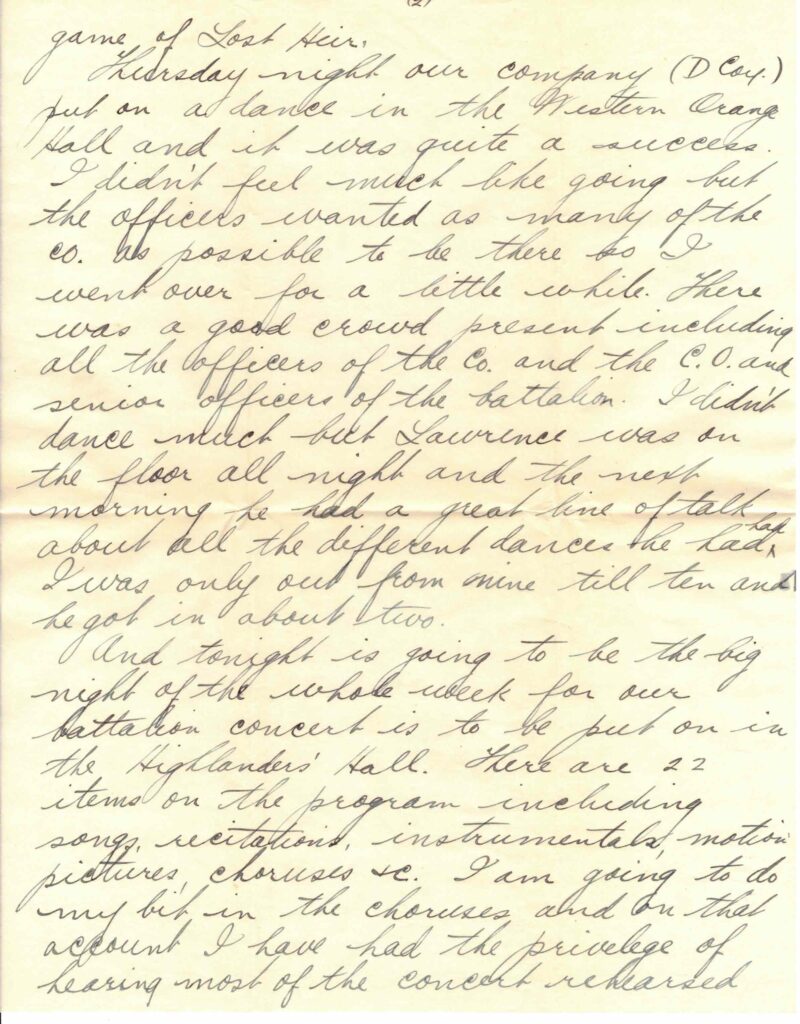 (2)
game of Lost Heir.
Thursday night our company (D Coy.)
put on a dance in the Western Orange
Hall and it was quite a success.
I didn't feel much like going but
the officers wanted as many of the
co. as possible to be there so I
went over for a little while. There
was a good crowd present including
all the officers of the Co. and the C.O. and
senior officers of the battalion. I didn't
dance much but Lawrence was on
the floor all night and the next
morning he had a great line of talk
about all the different dances he had had.
I was only out from nine till ten and
he got in about two.
And tonight is going to be the big
night of the whole week for our
battalion concert is to be put on in
the Highlanders' Hall. There are 22
items on the program including
songs, recitations, instrumentals, motion
pictures, choruses &c. I am going to do
my bit in the choruses and on that
account I have had the privelege of
hearing most of the concert rehearsed